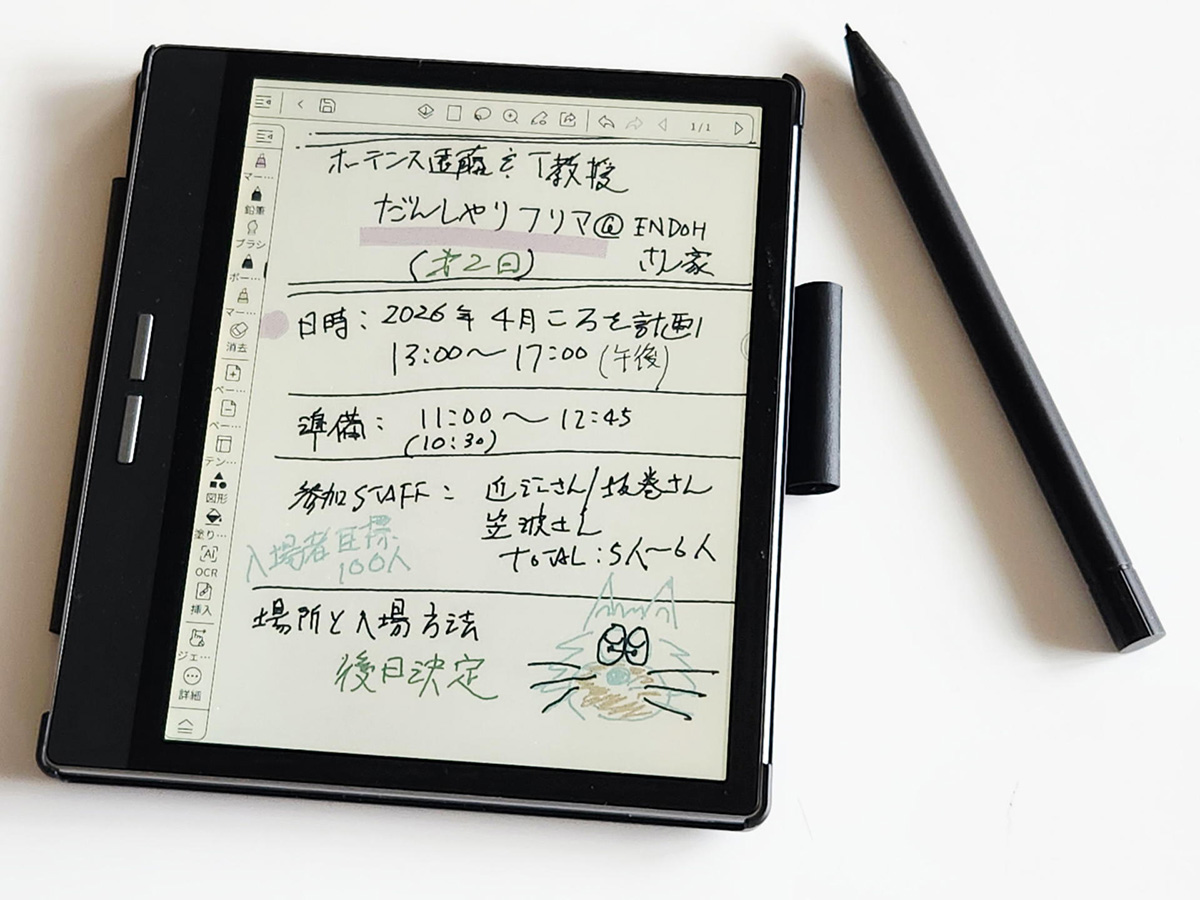 1/1
マー…
鉛筆
ブラシ
ボー…
マー…
消去
ペー…
ペー…
テン…
図形
塗り…
AI
OCR
挿入
ジェ…
詳細
ホーテンス遠藤とT教授
だんしゃりフリマ@ENDOH
さん家
(才2日)
日時: 2026年4月ころを計画
13:00〜17:00(午後)
準備: 11:00〜12:45
(10:30)
参加STAFF: 近江さん/坂巻さん
さん
TOTAL:5人〜6人
入場者目標
100人
場所と入場方法
後日決定